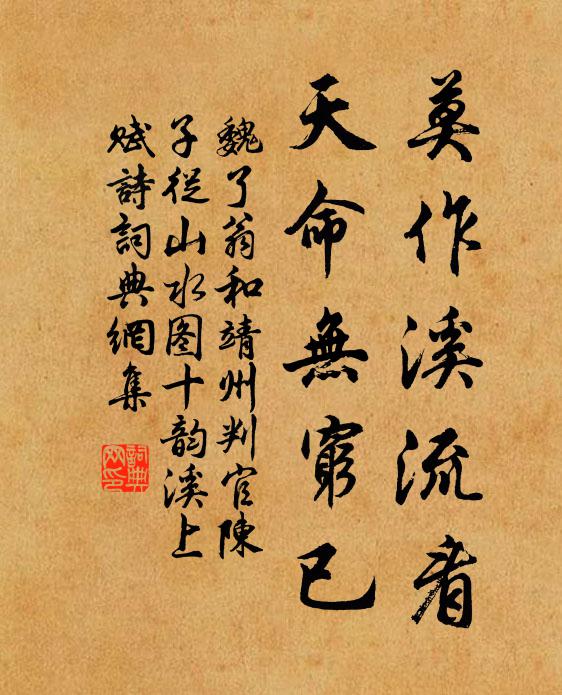 莫作溪流看
天命無窮已
魏了翁和靖州判官陳
子從山水图十韵溪上
赋詩詞典網集
詞典网印